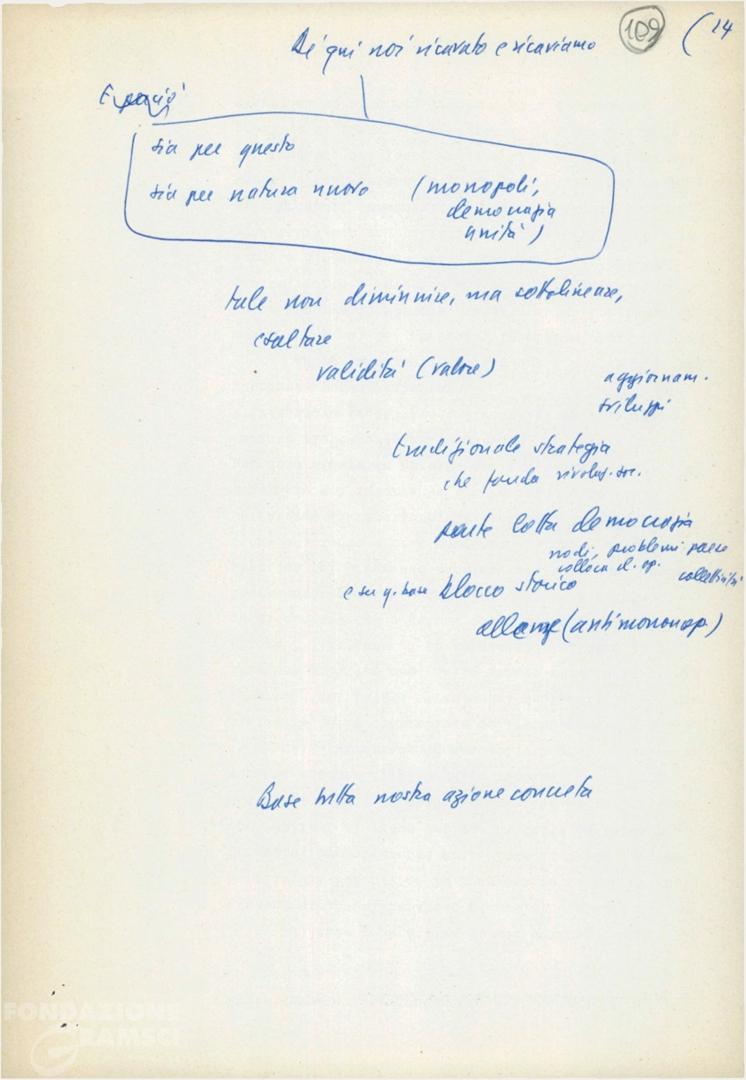 109
(14
Di qui noi ricavato e ricaviamo
E perciò
sia per questo
sia per natura nuova (monopoli,
democrazia
unità)
tale non diminuire, ma sottolineare,
esaltare
validità (valore)
aggiornam.
sviluppi
tradizionale strategia
che fonda rivoluz.
parte lotta democrazia
nodi, problemi paese
colloca cl. op.
collettività
e su q. base blocco storico
alleanze (antimonop)
Base tutta nostra azione concreta
FONDAZIONE
GRAMSCI